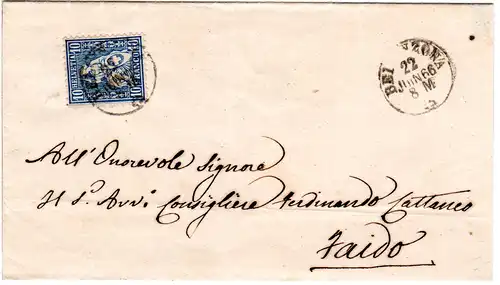 10 10
BELLINZONA
22
JUIN 66
8 M
All' Onorevole Signore
Il S.ʳ Avv.º Consigliere Ferdinando Cattaneo
Faido